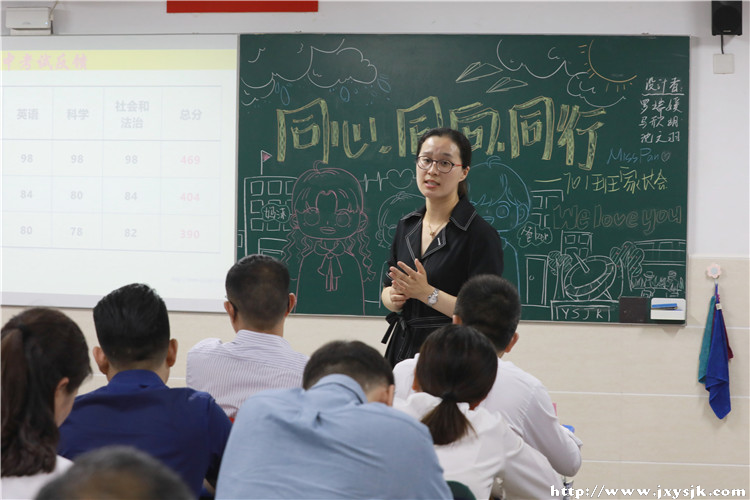 英语 科学 社会和法治 总分
98 98 98 469
84 80 84 404
80 78 82 390
同心.同向.同行
701班家长会
We love you
Miss Pan
设计者
YSJK
http://www.jxysjk.com